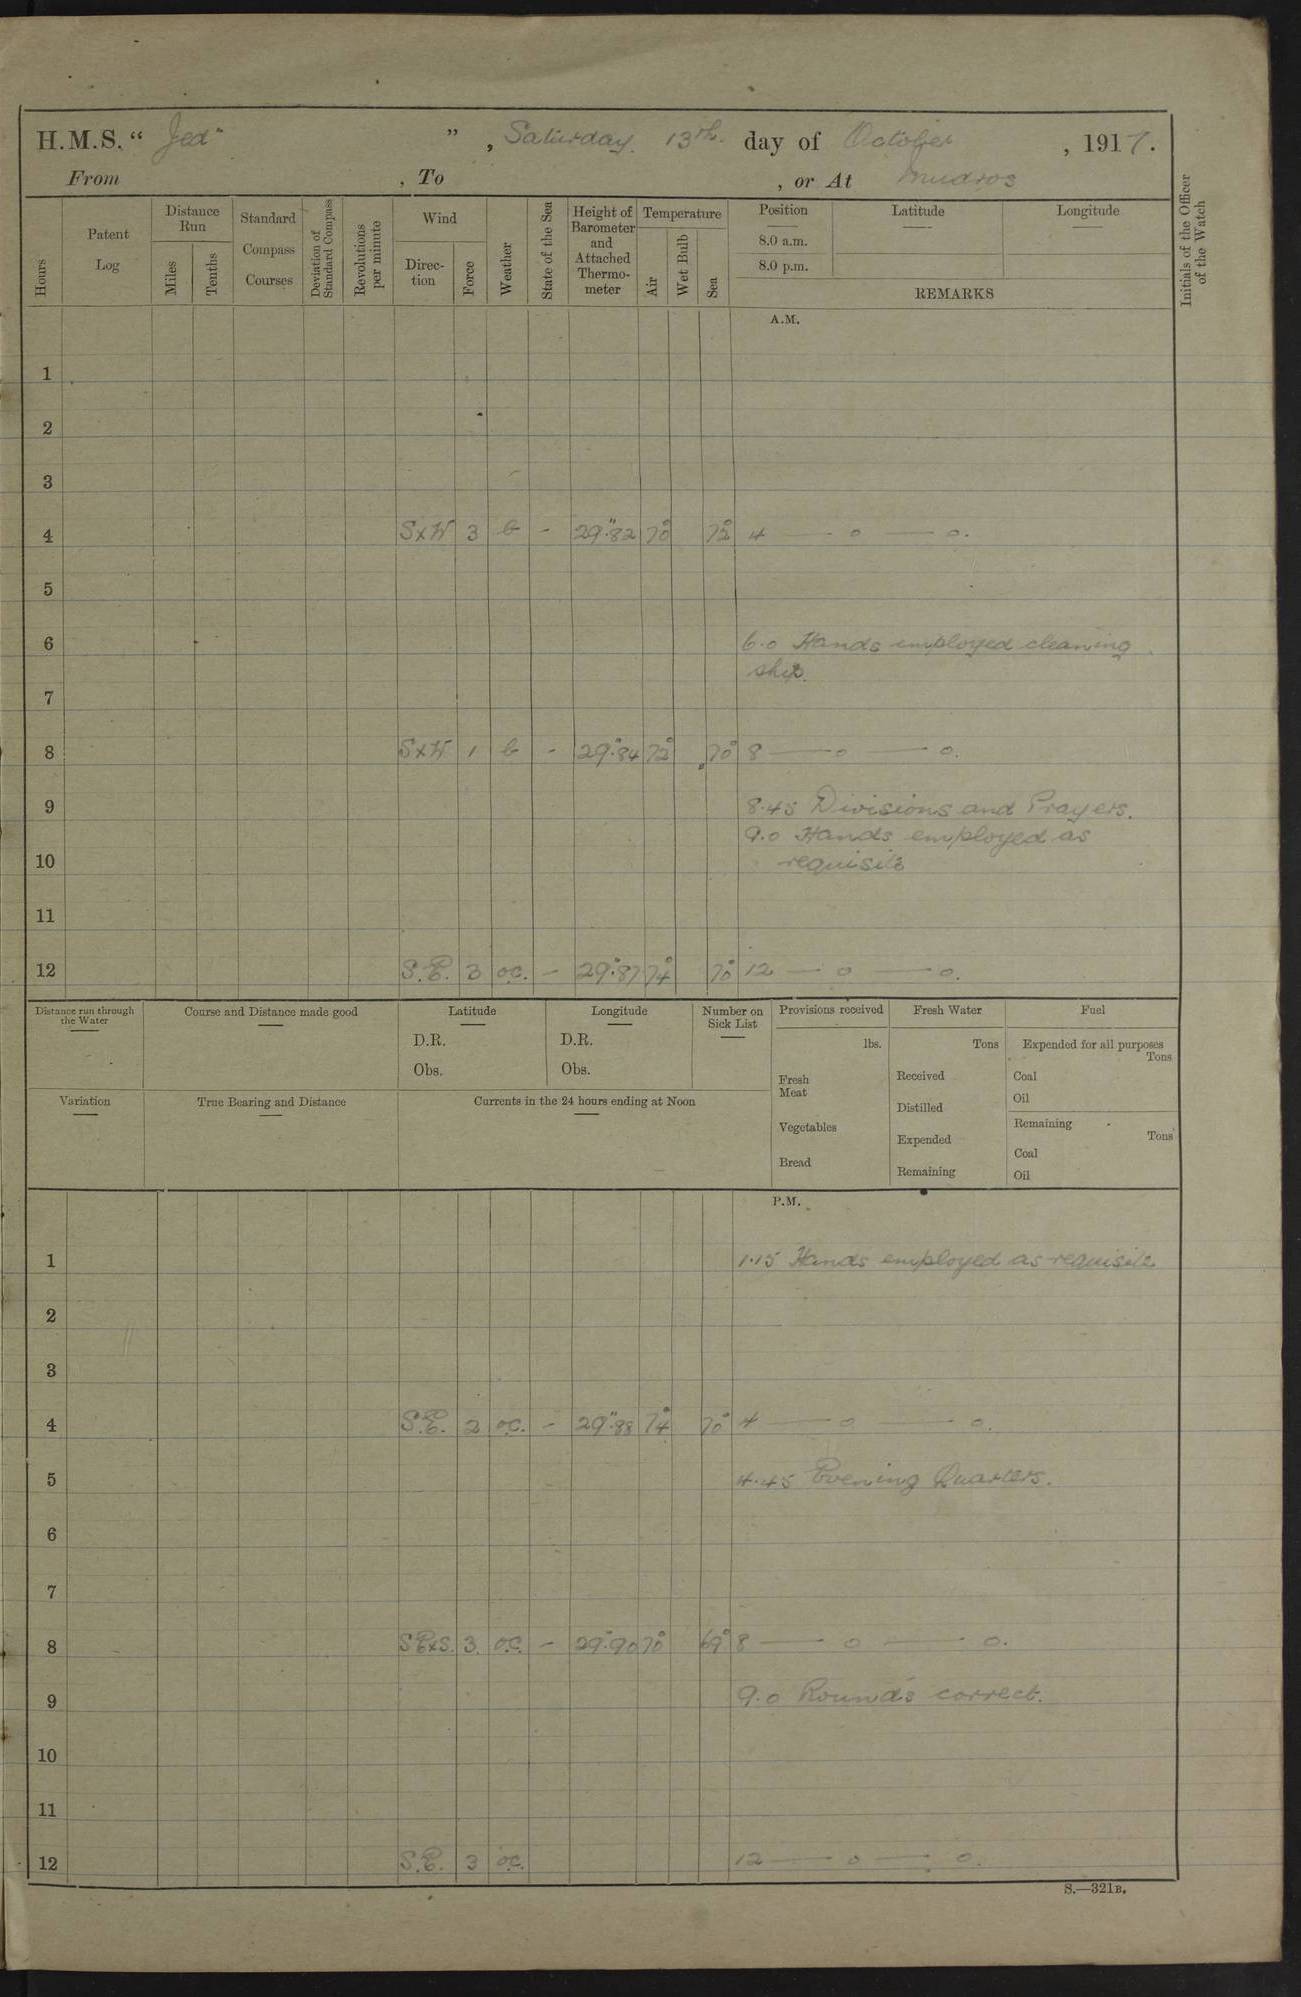 H.M.S. “ Jed ” , Saturday 13th. day of October , 1917.
From , To , or At Mudros
Hours
Patent Log
Distance Run
Miles
Tenths
Standard Compass Courses
Deviation of Standard Compass
Revolutions per minute
Wind
Direc-tion
Force
Weather
State of the Sea
Height of Barometer and Attached Thermo-meter
Temperature
Air
Wet Bulb
Sea
Position
8.0 a.m.
8.0 p.m.
Latitude
Longitude
REMARKS
Initials of the Officer of the Watch
A.M.
1
2
3
4 SxW 3 b - 29".82 70° 72° 4 — o — o.
5
6 6.0 Hands employed cleaning
ship.
7
8 SxW 1 b - 29".84 72° 70° 8 — o — o.
9 8.45 Divisions and Prayers.
9.0 Hands employed as
10 requisite
11
12 S.E. 3 oc. - 29".87 74° 70° 12 — o — o.
Distance run through the Water
Course and Distance made good
Latitude
D.R.
Obs.
Longitude
D.R.
Obs.
Number on Sick List
Provisions received
lbs.
Fresh Meat
Vegetables
Bread
Fresh Water
Tons
Received
Distilled
Expended
Remaining
Fuel
Expended for all purposes
Tons
Coal
Oil
Remaining
Tons
Coal
Oil
Variation
True Bearing and Distance
Currents in the 24 hours ending at Noon
P.M.
1 1.15 Hands employed as requisite
2
3
4 S.E. 2 oc. - 29".88 74° 70° 4 — o — o.
5 4.45 Evening Quarters.
6
7
8 SExS. 3. o.c. - 29".90 70° 69° 8 — o — o.
9 9.0 Rounds correct.
10
11
12 S.E. 3 oc. 12 — o — o.
S.—321B.